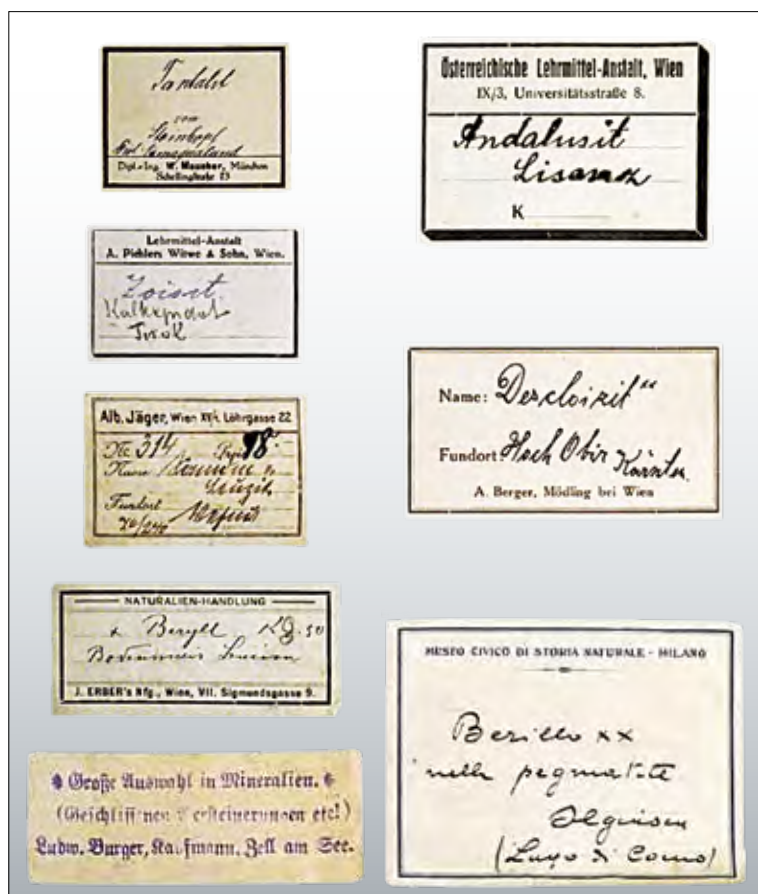 Tantalit
von
Steinkopf
Namaqualand
Dipl.-Ing. W. Maucher, München
Schellingstraße 73
Lehrmittel-Anstalt
A. Pichlers Witwe & Sohn, Wien.
Zoisit
Kalkepidot
Tirol
Alb. Jäger, Wien Löhrgasse 22
Nr. 314 Preis 18.
Name
Leuzit
Fundort Vesuv
NATURALIEN-HANDLUNG
x Beryll
Bodenmais
J. ERBER's Nfg., Wien, VII. Sigmundsgasse 9.
Große Auswahl in Mineralien.
(Geschliffenen Versteinerungen etc!)
Ludw. Burger, Kaufmann, Zell am See.
Österreichische Lehrmittel-Anstalt, Wien
IX/3, Universitätsstraße 8.
Andalusit
Lisanz
K
Name: Descloizit"
Fundort: Hoch Obir Kärnten
A. Berger, Mödling bei Wien
MUSEO CIVICO DI STORIA NATURALE - MILANO
Berillo xx
nella pegmatite
Olgiasca
(Lago di Como)